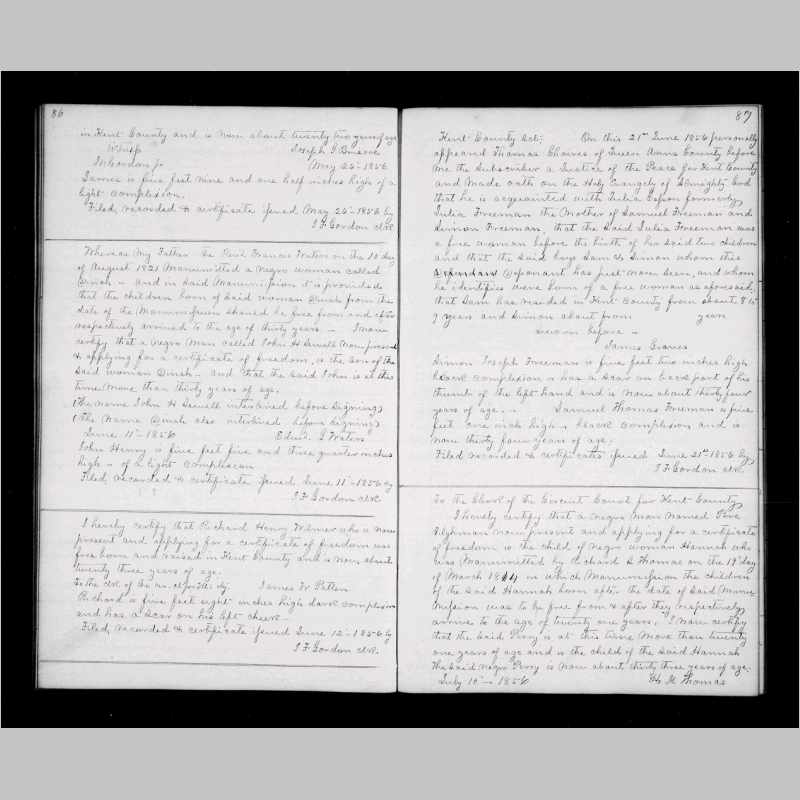 86
in Kent County and is now about twenty two years of age
Joseph T Briscoe
J F Gordon May 26th 1856
James is five feet nine and one half inches high of a
light complexion.
Filed, recorded & certificate issued May 26th 1856 by
J F Gordon clk
Whereas My Father the Revd Francis Waters on the 10 day
of August 1821 Manumitted a Negro woman called
Dinah — and in said Manumission it is provided
that the children born of said woman Dinah from the
date of the Manumission should be free from and after
respectively arrived to the age of thirty years — I now
certify that a Negro Man called John H Sewell now present
& applying for a certificate of freedom, is the son of the
said woman Dinah — and that the said John is at this
time More than thirty years of age.
(The name John H Sewell interlined before signing
(The Name Dinah also interlined before signing
June 11th 1856 Edwd. J Waters
John Henry is five feet five and three quarter inches
high — of a light complexion
Filed, recorded & certificate issued June 11th 1856 by
J F Gordon clk
I hereby certify that Richard Henry Wilmer who is now
present and applying for a certificate of freedom was
free born and raised in Kent County and is now about
twenty three years of age.
To the clk of James W Patten
Richard is five feet eight inches high dark complexion
and has a scar on his left cheek —
Filed, recorded & certificate issued June 12th 1856 by
J F Gordon clk.
87
Kent County Sct: On this 21st June 1856 personally
appeared Thomas Chaires of Queen Anns County before
me the subscriber a Justice of the Peace for Kent County
and Made oath on the Holy Evangely of Almighty God
that he is acquainted with Julia formerly
Julia Freeman the Mother of Samuel Freeman and
Simon Freeman, that the said Julia Freeman was
a free woman before the birth of her said two children
and that the said boys Sam & Simon whom this
deponant has just now seen, and whom
he identifies were born of a free woman as aforesaid;
that Sam has resided in Kent County from about 8 to
9 years and Simon about from years
Sworn before —
James Graves
Simon Joseph Freeman is five feet two inches high
black complexion & has a scar on back part of his
thumb of the left hand and is now about thirty four
years of age. — Samuel Thomas Freeman is five
feet one inch high — black complexion and is
now thirty four years of age;
Filed recorded & certificates issued June 21st 1856 by
J F Gordon clk
To the Clerk of the Circuit Court for Kent County
I hereby certify that a negro man named Pere
Tilghman now present and applying for a certificate
of freedom is the child of negro woman Hannah who
was Manumitted by Richard S Thomas on the day
of March 1814 in which Manumission the children
of the said Hannah born after the date of said Manu
mission was to be free from & after they respectively
arrive to the age of twenty one years; I now certify
that the said Perry is at this time More than twenty
one years of age and is the child of the said Hannah
the said negro Perry is now about thirty three years of age.
July 10th 1856 Thomas